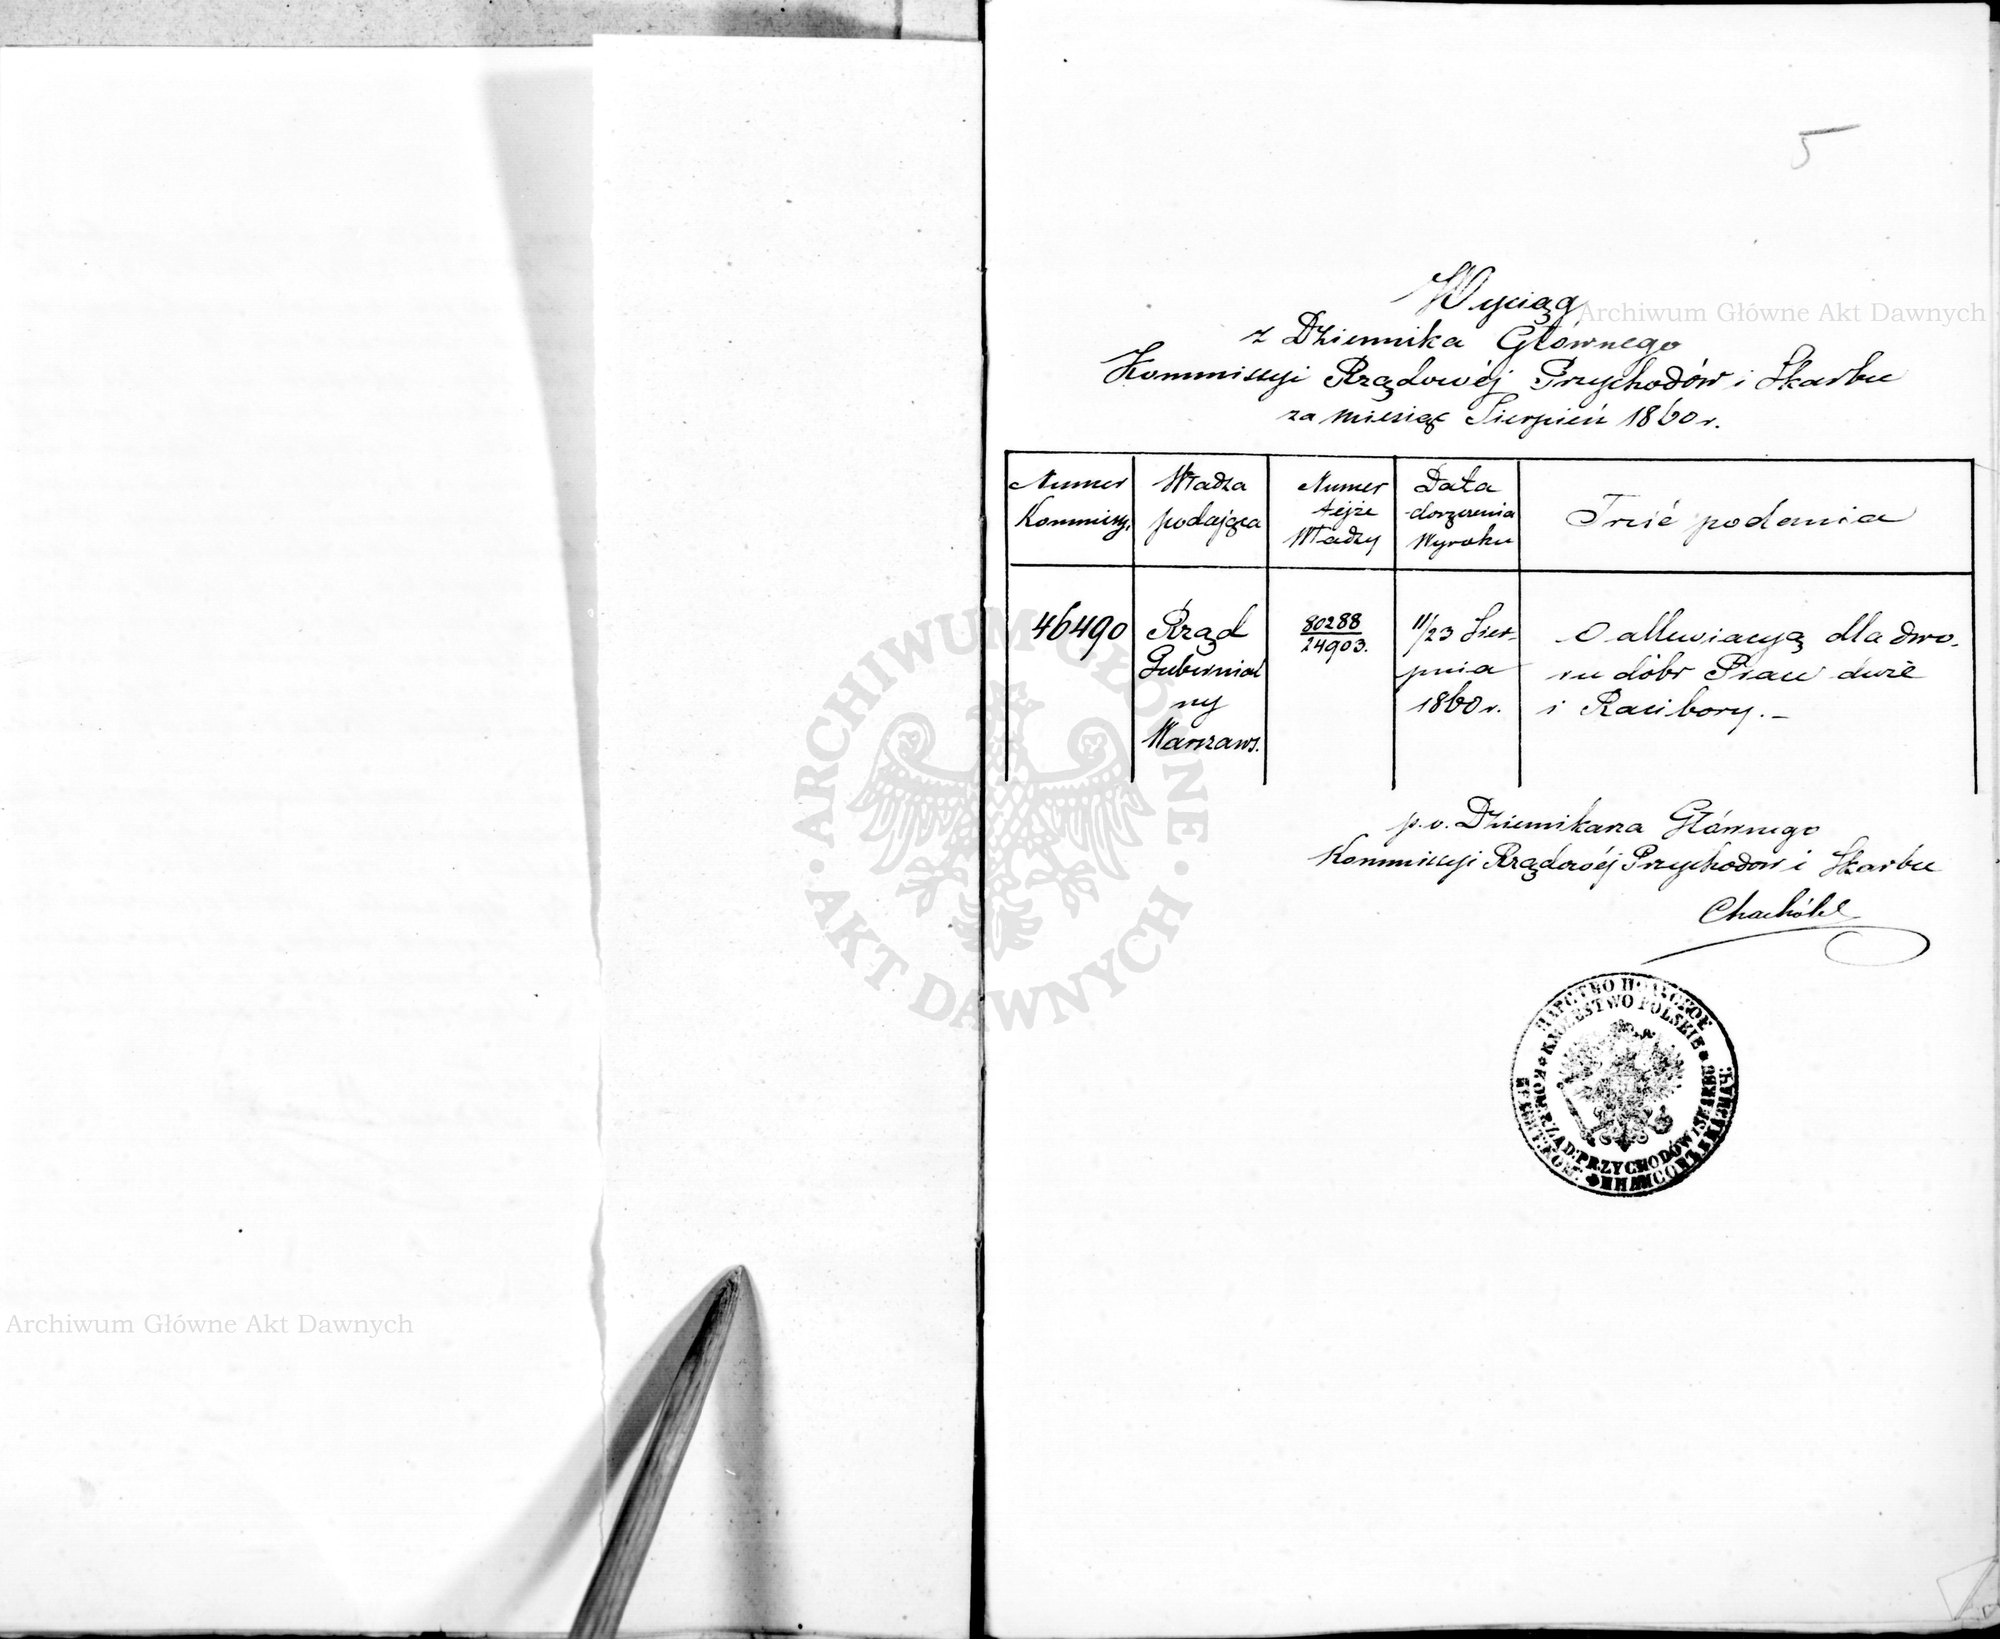 5
Wyciąg
z Dziennika Głównego
Kommissyi Rządowéj Przychodów i Skarbu
za miesiąc Sierpień 1860 r.
Numer Kommissyi
Władza podająca
Numer tejże Władzy
Data doręczenia Wyroku
Treść podania
46490
Rząd
Gubernial
ny
Warszaws.
80288
24903.
11/23 Sier-
pnia
1860 r.
O alluwiacyą dla dwo-
ru dóbr duże
i Racibory.–
p.o. Dziennikarza Głównego
Kommissyi Rządowéj Przychodów i Skarbu
KRÓLESTWO POLSKIE
KOM. RZĄD. PRZYCHODÓW I SKARBU
Archiwum Główne Akt Dawnych
Archiwum Główne Akt Dawnych
ARCHIWUM GŁÓWNE · AKT DAWNYCH ·